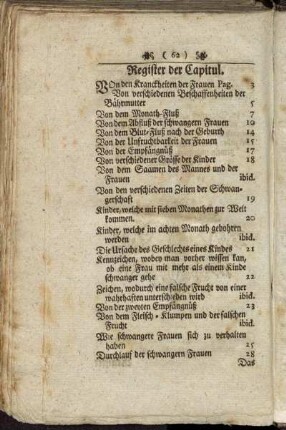 ( 62 )
Register der Capitul.
VOn den Kranckheiten der Frauen Pag. 3
Von verschiedenen Beschaffenheiten der
Bährmutter 5
Von dem Monath-Fluß 7
Von dem Abfluß der schwangern Frauen 10
Von dem Blut-Fluß nach der Geburth 14
Von der Unfruchtbarkeit der Frauen 15
Von der Empfängnüß 17
Von verschiedener Grösse der Kinder 18
Von dem Saamen des Mannes und der
Frauen ibid.
Von den verschiedenen Zeiten der Schwan-
gerschafft 19
Kinder, welche mit sieben Monathen zur Welt
kommen. 20
Kinder, welche im achten Monath gebohren
werden ibid.
Die Ursache des Geschlechts eines Kindes 21
Kennzeichen, wobey man vorher wissen kan,
ob eine Frau mit mehr als einem Kinde
schwanger gehe 22
Zeichen, wodurch eine falsche Frucht von einer
wahrhafften unterschieden wird ibid.
Von der zweyten Empfängnüß 23
Von dem Fleisch-Klumpen und der falschen
Frucht ibid.
Wie schwangere Frauen sich zu verhalten
haben 25
Durchlauf der schwangern Frauen 28
Das